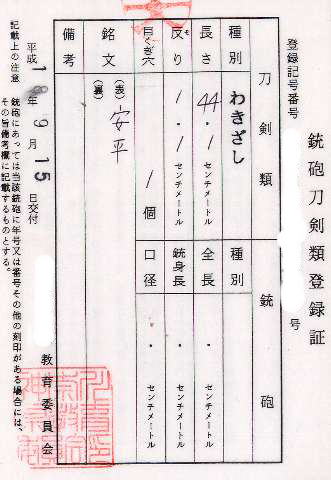 銃砲刀剣類登録証
登録記号番号
号
刀剣類
銃砲
種別
わきざし
種別
長さ
44.1センチメートル
全長
.センチメートル
反り
1.1センチメートル
銃身長
.センチメートル
目くぎ穴
1個
口径
.センチメートル
銘文
(表)安平
(裏)
備考
平成18年9月15日交付
教育委員会
記載上の注意
銃砲にあっては当該銃砲に年号又は番号その他の刻印がある場合には、
その旨備考欄に記載するものとする。